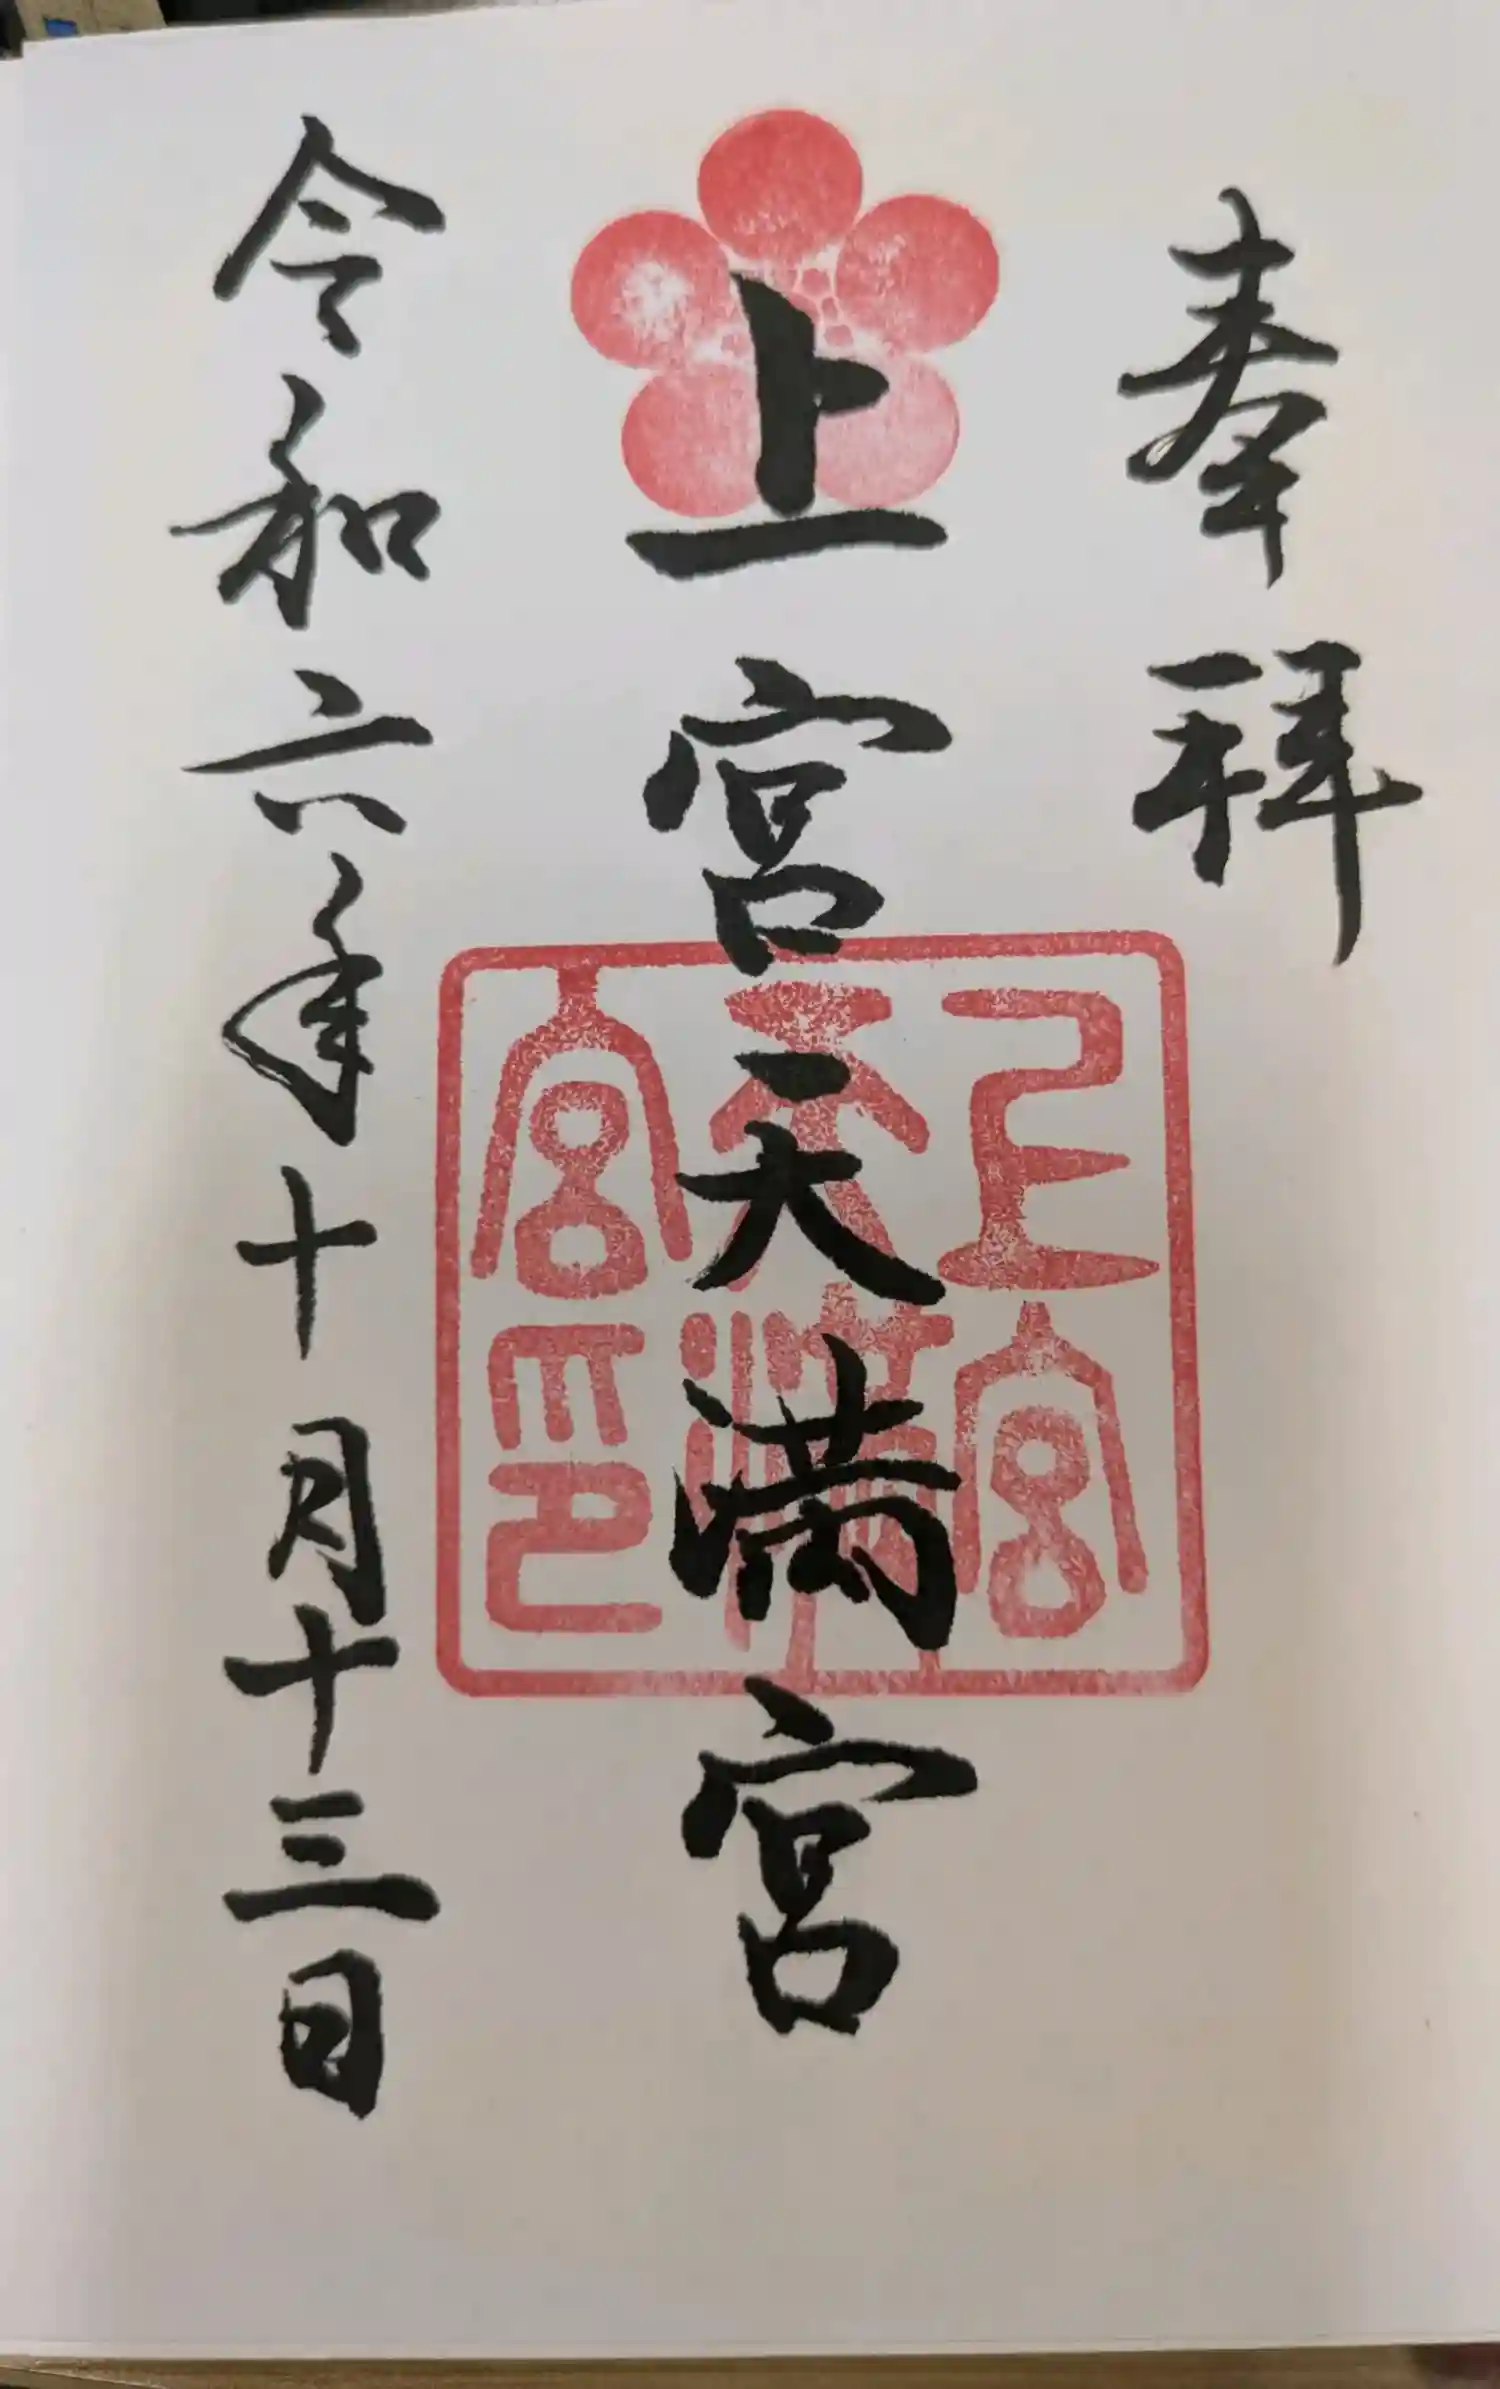 奉拝
上宮天満宮
上宮天満宮印
令和六年十月十三日